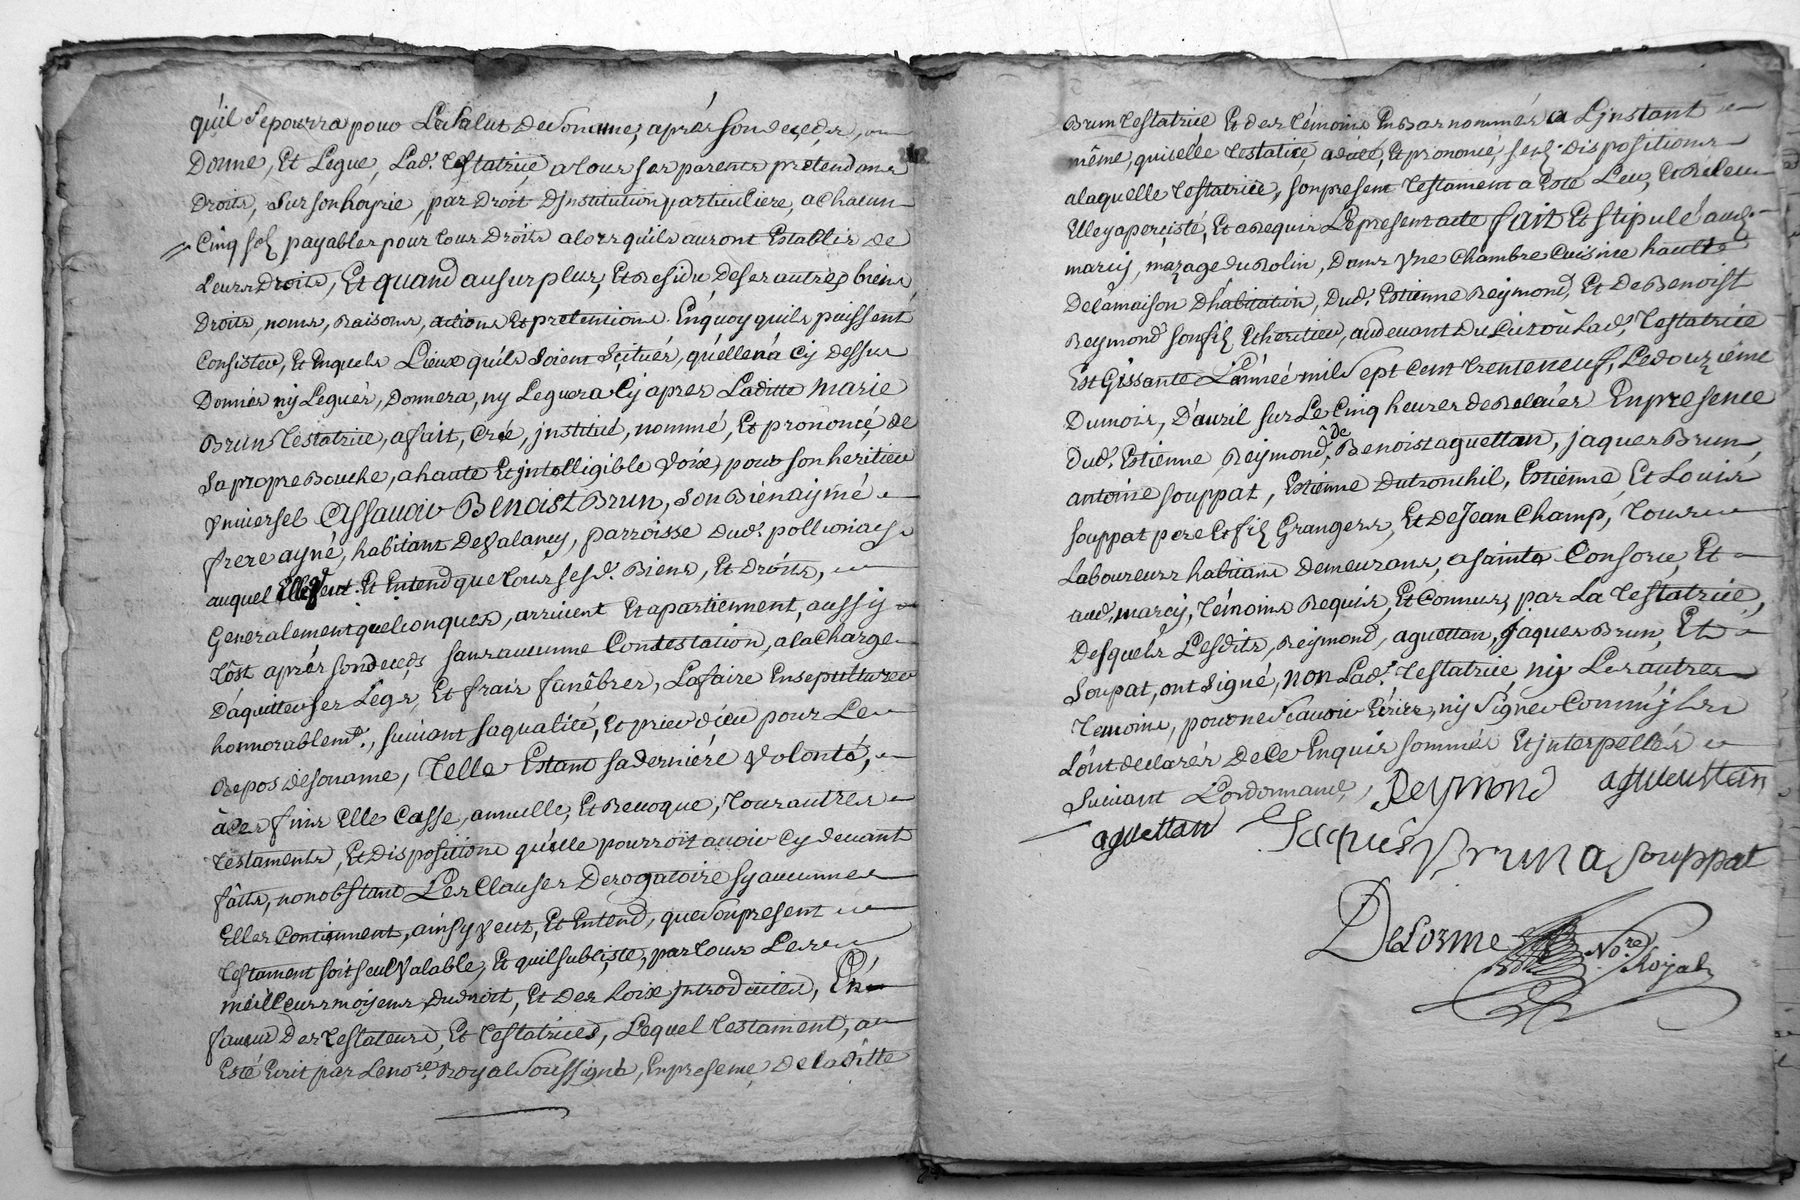 qu'il Sepourra pour Le Salut De Son ame, aprés son decedz,
Donne, Et Legue, Lad.e Testatrice, a tous ses parents pretendans
Droits, Sur son hoyrie, par Droit D'Jnstitution particuliere, a Chacun
Cinq solz payables pour tous Droits alors qu'ils auront Establis de
Leurs Droits, Et quand au surplus, Et Residu De ses autres biens,
Droits, noms, Raisons, actions Et pretentions. En quoy qu'ils puissent
Consister, Et En quels Lieux qu'ils Soient Scitués, qu'elle n'a Cy dessus
Donnés ny Legués, Donnera, ny Leguera Cy apres Laditte Marie
Brun Testatrice, a fait, Créé, jnstitué, nommé, Et prononcé, de
Sa propre Bouche, a haute Et jntelligible Voix, pour son heritier
Vniversel Assavoir Benoist Brun, Son Bien aymé
frere ayné, habitant De Valancy, parroisse Dud.t pollionay
auquel Elle veut Et Entend que tous sesd.ts Biens, Et Droits,
Generalement quelconques, arrivent Et apartiennent, aussy
tôst aprés son decedz sans aucune Contestation, a la Charge
D'aquitter Ses Legs, Et frais funêbres, La faire Ensepulturer
honnorablem.t, suivant sa qualité, Et prier dieu pour Le
Repos de Son ame, Telle Estant sa derniére Volonté,
à Ces fins Elle Casse, annulle, Et Revoque, tous autres
Testaments, Et Dispositions qu'elle pourroit avoir Cy devant
faits, nonobstant Les Clauses Derogatoire sy aucunne
Elles Contiennent, ainsy Veut, Et Entend, que Son present
Testament soit seul Valable, Et qu'il subciste, par tous Les
meilleurs moyens du Droit, Et Des Loix jntroduites, En
faveur Des Testateurs, Et Testatrices, Lequel Testament, a
Esté Ecrit par Le no.re Royal Soussigné, En presence De laditte
Brun Testatrice Et des Témoins En Bas nommés a L'jnstant
même, qu'icelle Testatrice a dicté, Et prononcé, sesd. Dispositions
a laquelle Testatrice, son present Testament a Esté Leu, Et Releu
Elle y a perciste, Et a Requis Le present acte fait Et stipulé aud.
marcy, mazage du Bolin, Dans Vne Chambre Cuisine haulte
De la maison D'habitation, Dud.t Estienne Reymond, Et De Benoist
Reymond son filz Et heritier, au devant Du Lit où Lad.e Testatrice
Est Gissante L'année mil Sept Cent trente neuf, Le douzième
Du mois, D'avril sur Le Cinq heures de Relaiés En presence
Dud.t Estienne Reymond, de Benoist aguettan, jaques Brun,
antoine souppat, Estienne Dutronchil, Estienne Et Louis
souppat pere Et filz Grangers, Et De Jean Champ, tous
Laboureurs habitans demeurans, a sainte Consorce, Et
aud. marcy, témoins Requis, Et Connus, par La Testatrice,
Desquels Lesdits, Reymond, aguettan, jaques Brun, Et
Soupat, ont Signé, non Lad.e Testatrice ny Les autres
Temoins, pour ne Scavoir Ecrire, ny Signer Comm'jls
L'ont declarés De Ce Enquis sommés Et jnterpellés
Suivant L'ordonnance, Reymond agueustain
aguettan Jaques Brun a souppat
Delorme No.re Royal